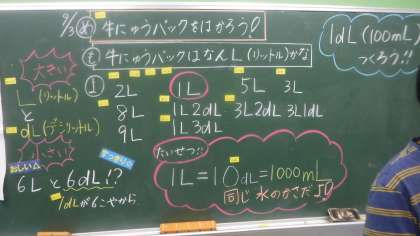 9/3 め 牛にゅうパックをはかろう!
も 牛にゅうパックはなんL(リットル)かな
1dL(100mL)
つくろう!!
大きい
L(リットル)
と
dL(デシリットル)
小さい
よ
2L 1L 5L 3L
8L 1L2dL 3L2dL 3L1dL
9L 1L3dL
おしい
すっきり
6Lと6dL!?
1dLが6こやから
たいせつ!!
1L=10dL=1000mL
同じ水のかさだよ!